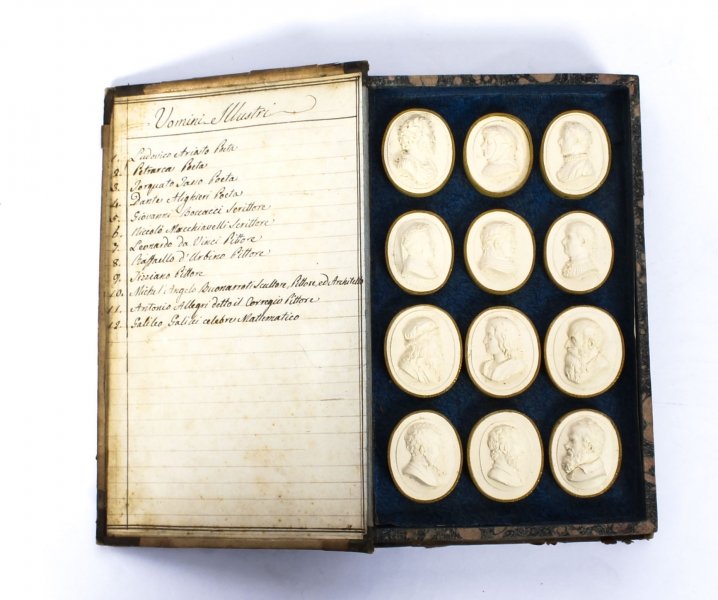 Uomini Illustri
1. Ludovico Ariosto Poeta
2. Petrarca Poeta
3. Torquato Tasso Poeta
4. Dante Alighieri Poeta
5. Giovanni Boccacci Scrittore
6. Niccolò Macchiavelli Scrittore
7. Leonardo da Vinci Pittore
8. Raffaello d'Urbino Pittore
9. Tiziano Pittore
10. Michel'Angelo Buonarroti Scultore, Pittore, ed Architetto
11. Antonio Allegri detto il Corregio Pittore
12. Galileo Galilei celebre Matematico